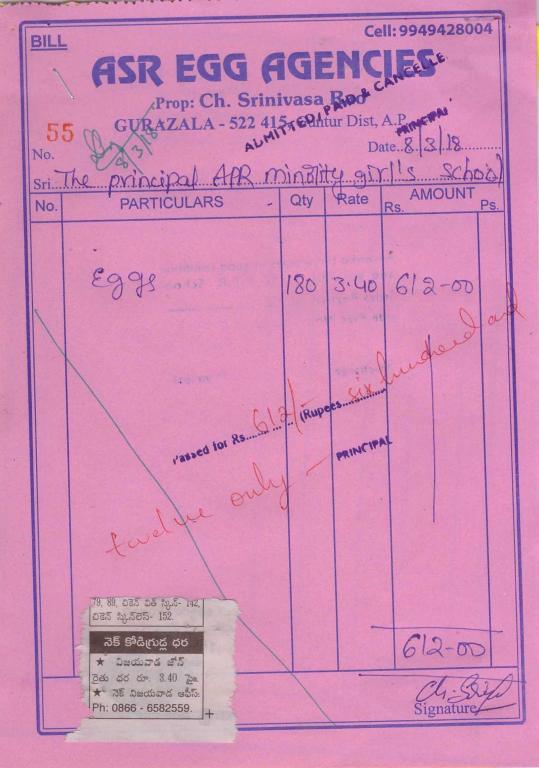 BILL
Cell: 9949428004
ASR EGG AGENCIES
Prop: Ch. Srinivasa Rao
GURAZALA - 522 415, Guntur Dist, A.P.
ADMITTED, PAID & CANCELLE
PRINCIPAL
55
8/3/18
No.
Date 8/3/18
Sri. The principal APR minolity girl's school
No. PARTICULARS Qty Rate AMOUNT
Rs. Ps.
Eggs 180 3.40 612-00
Passed for Rs. 612/- (Rupees six hundred and
twelve only -
PRINCIPAL
79, 89, చికెన్ విత్ స్కిన్- 142,
చికెన్ స్కిన్‌లెస్- 152.
నెక్ కోడిగ్రుడ్ల ధర
★ విజయవాడ జోన్
రైతు ధర రూ. 3.40 పై.
★ నెక్ విజయవాడ ఆఫీస్:
Ph: 0866 - 6582559.
612-00
Signature